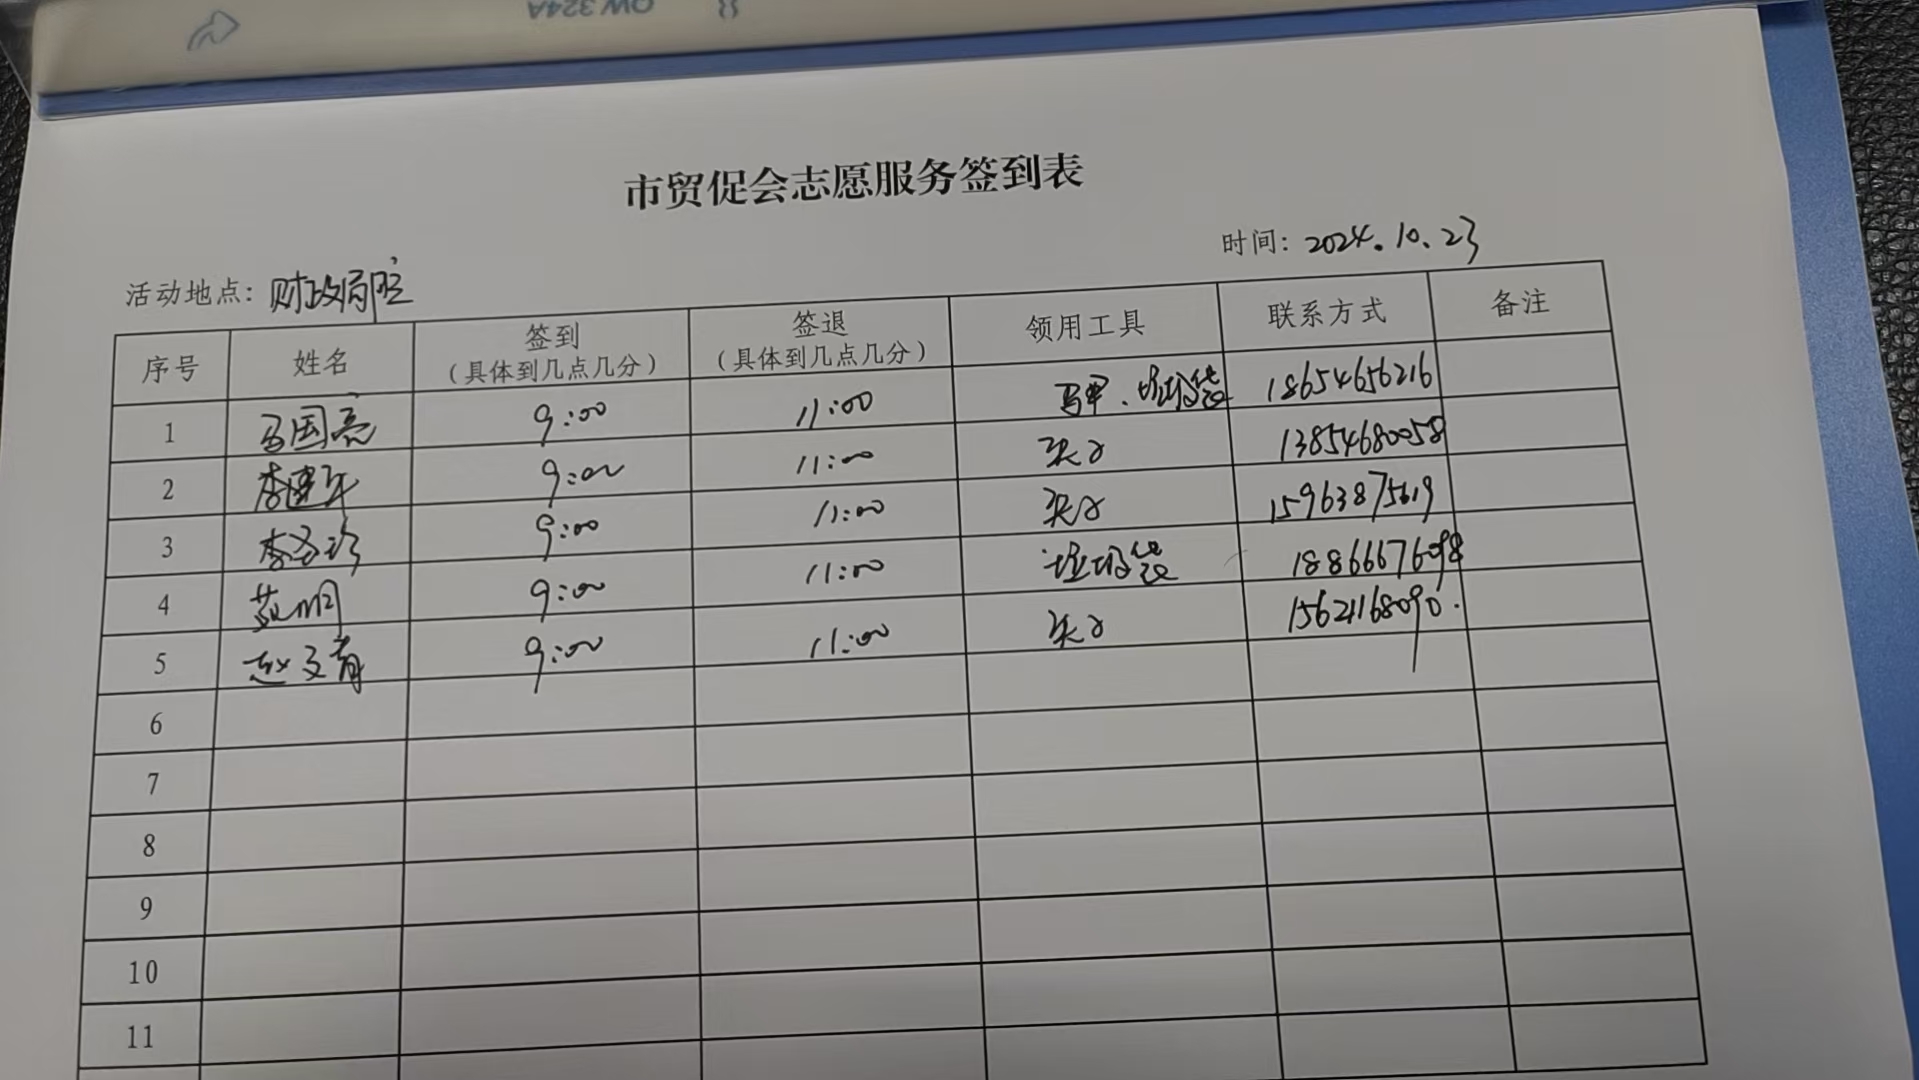 QW324A
市贸促会志愿服务签到表
时间: 2024.10.23
活动地点: 财政局院
序号 姓名 签到 (具体到几点几分) 签退 (具体到几点几分) 领用工具 联系方式 备注
1 马国亮 9:00 11:00 马甲、垃圾袋 18654656216
2 李建军 9:00 11:00 夹子 13854680058
3 9:00 11:00 夹子 15963875619
4 范明 9:00 11:00 垃圾袋 18866676098
5 赵文青 9:00 11:00 夹子 15621168090
6
7
8
9
10
11